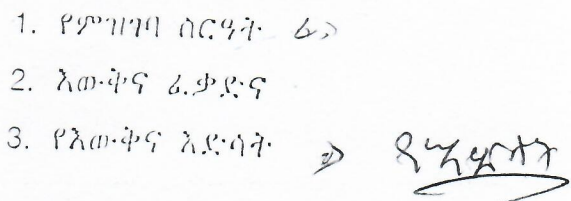 1. የምዝገባ ስርዓት
2. እውቅና ፈቃድና
3. የእውቅና እድሳት